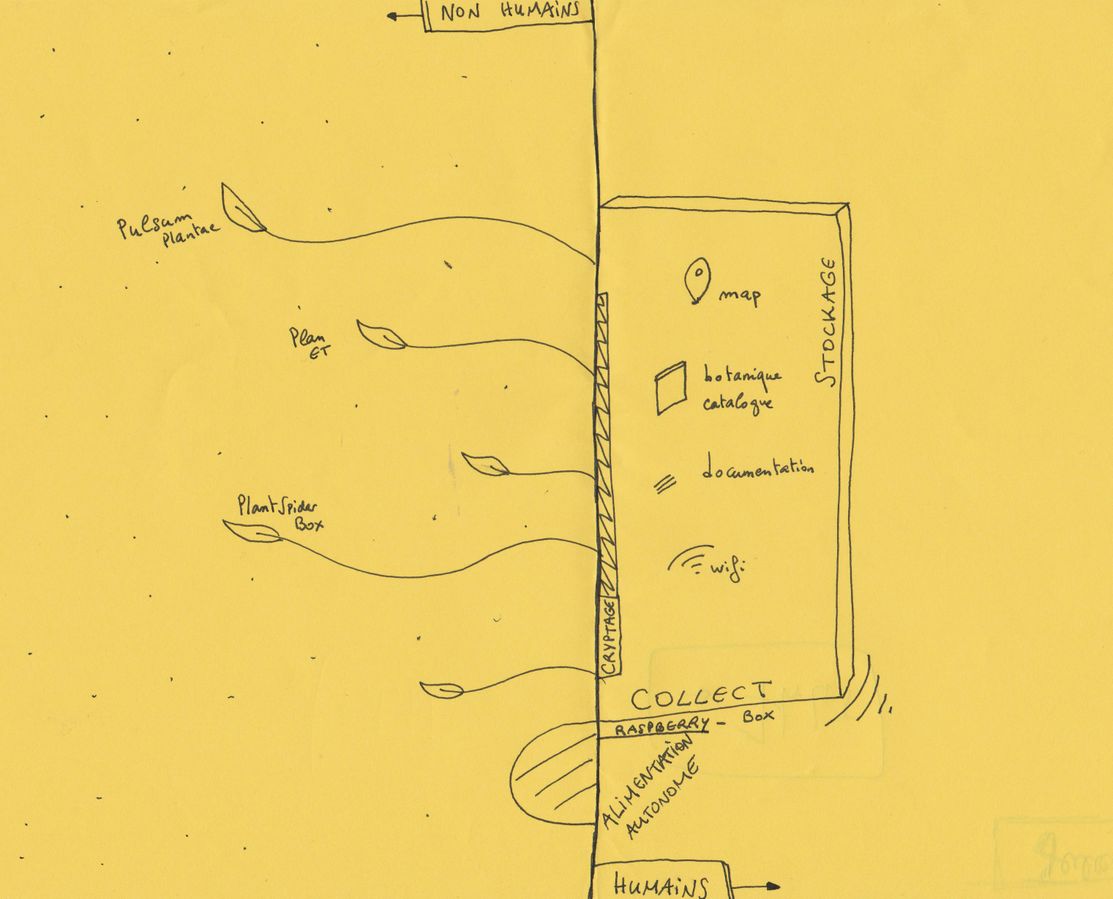 NON HUMAiNS
Pulsum
Plantae
Plan
ET
PlantSpider
Box
map
botanique
catalogue
documentation
wifi
STOCKAGE
CRYPTAGE
COLLECT
RASPBERRY - BOX
ALiMENTATiON
AUTONOME
HUMAiNS